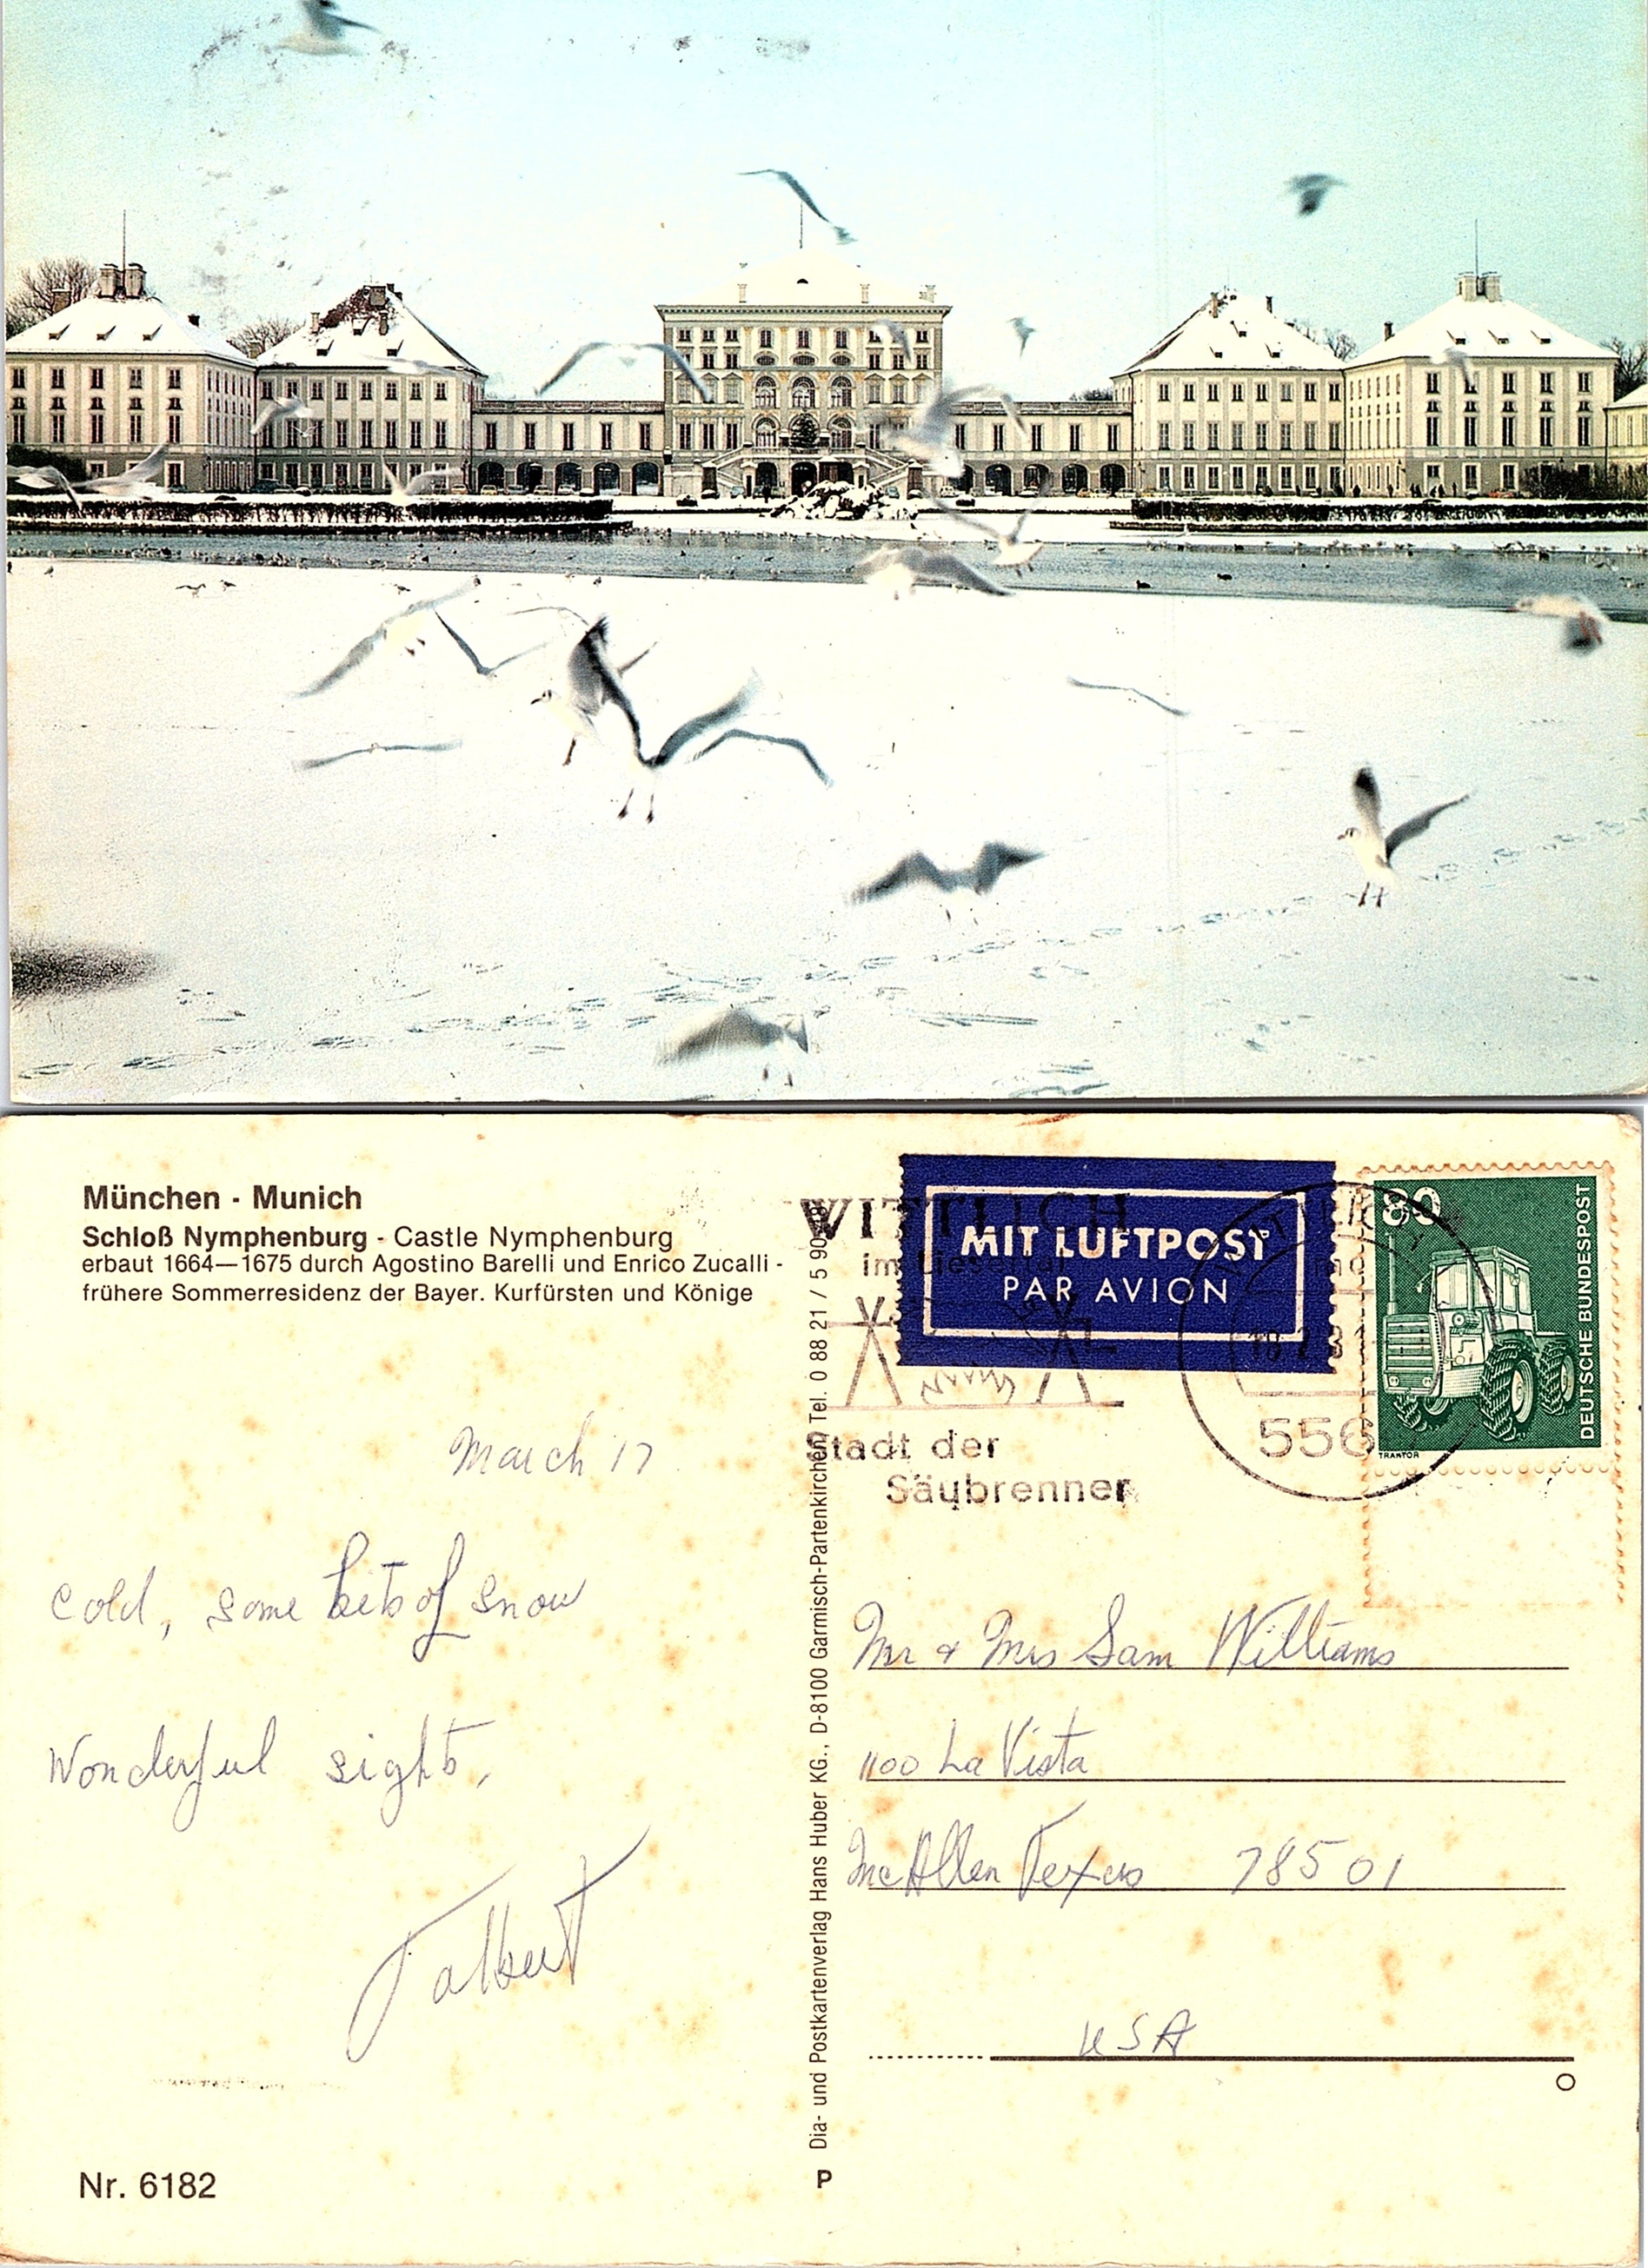 München - Munich
Schloß Nymphenburg - Castle Nymphenburg
erbaut 1664—1675 durch Agostino Barelli und Enrico Zucalli -
frühere Sommerresidenz der Bayer. Kurfürsten und Könige
March 17
Cold, some bits of snow
Wonderful sights,
Talbert
Nr. 6182
Dia- und Postkartenverlag Hans Huber KG., D-8100 Garmisch-Partenkirchen, Tel. 0 88 21 / 5 90
P
WITTLICH
im Liesertal
Stadt der
Säubrenner
MIT LUFTPOST
PAR AVION
556
80
DEUTSCHE BUNDESPOST
TRAKTOR
Mr & Mrs Sam Williams
1100 La Vista
McAllen Texas 78501
USA